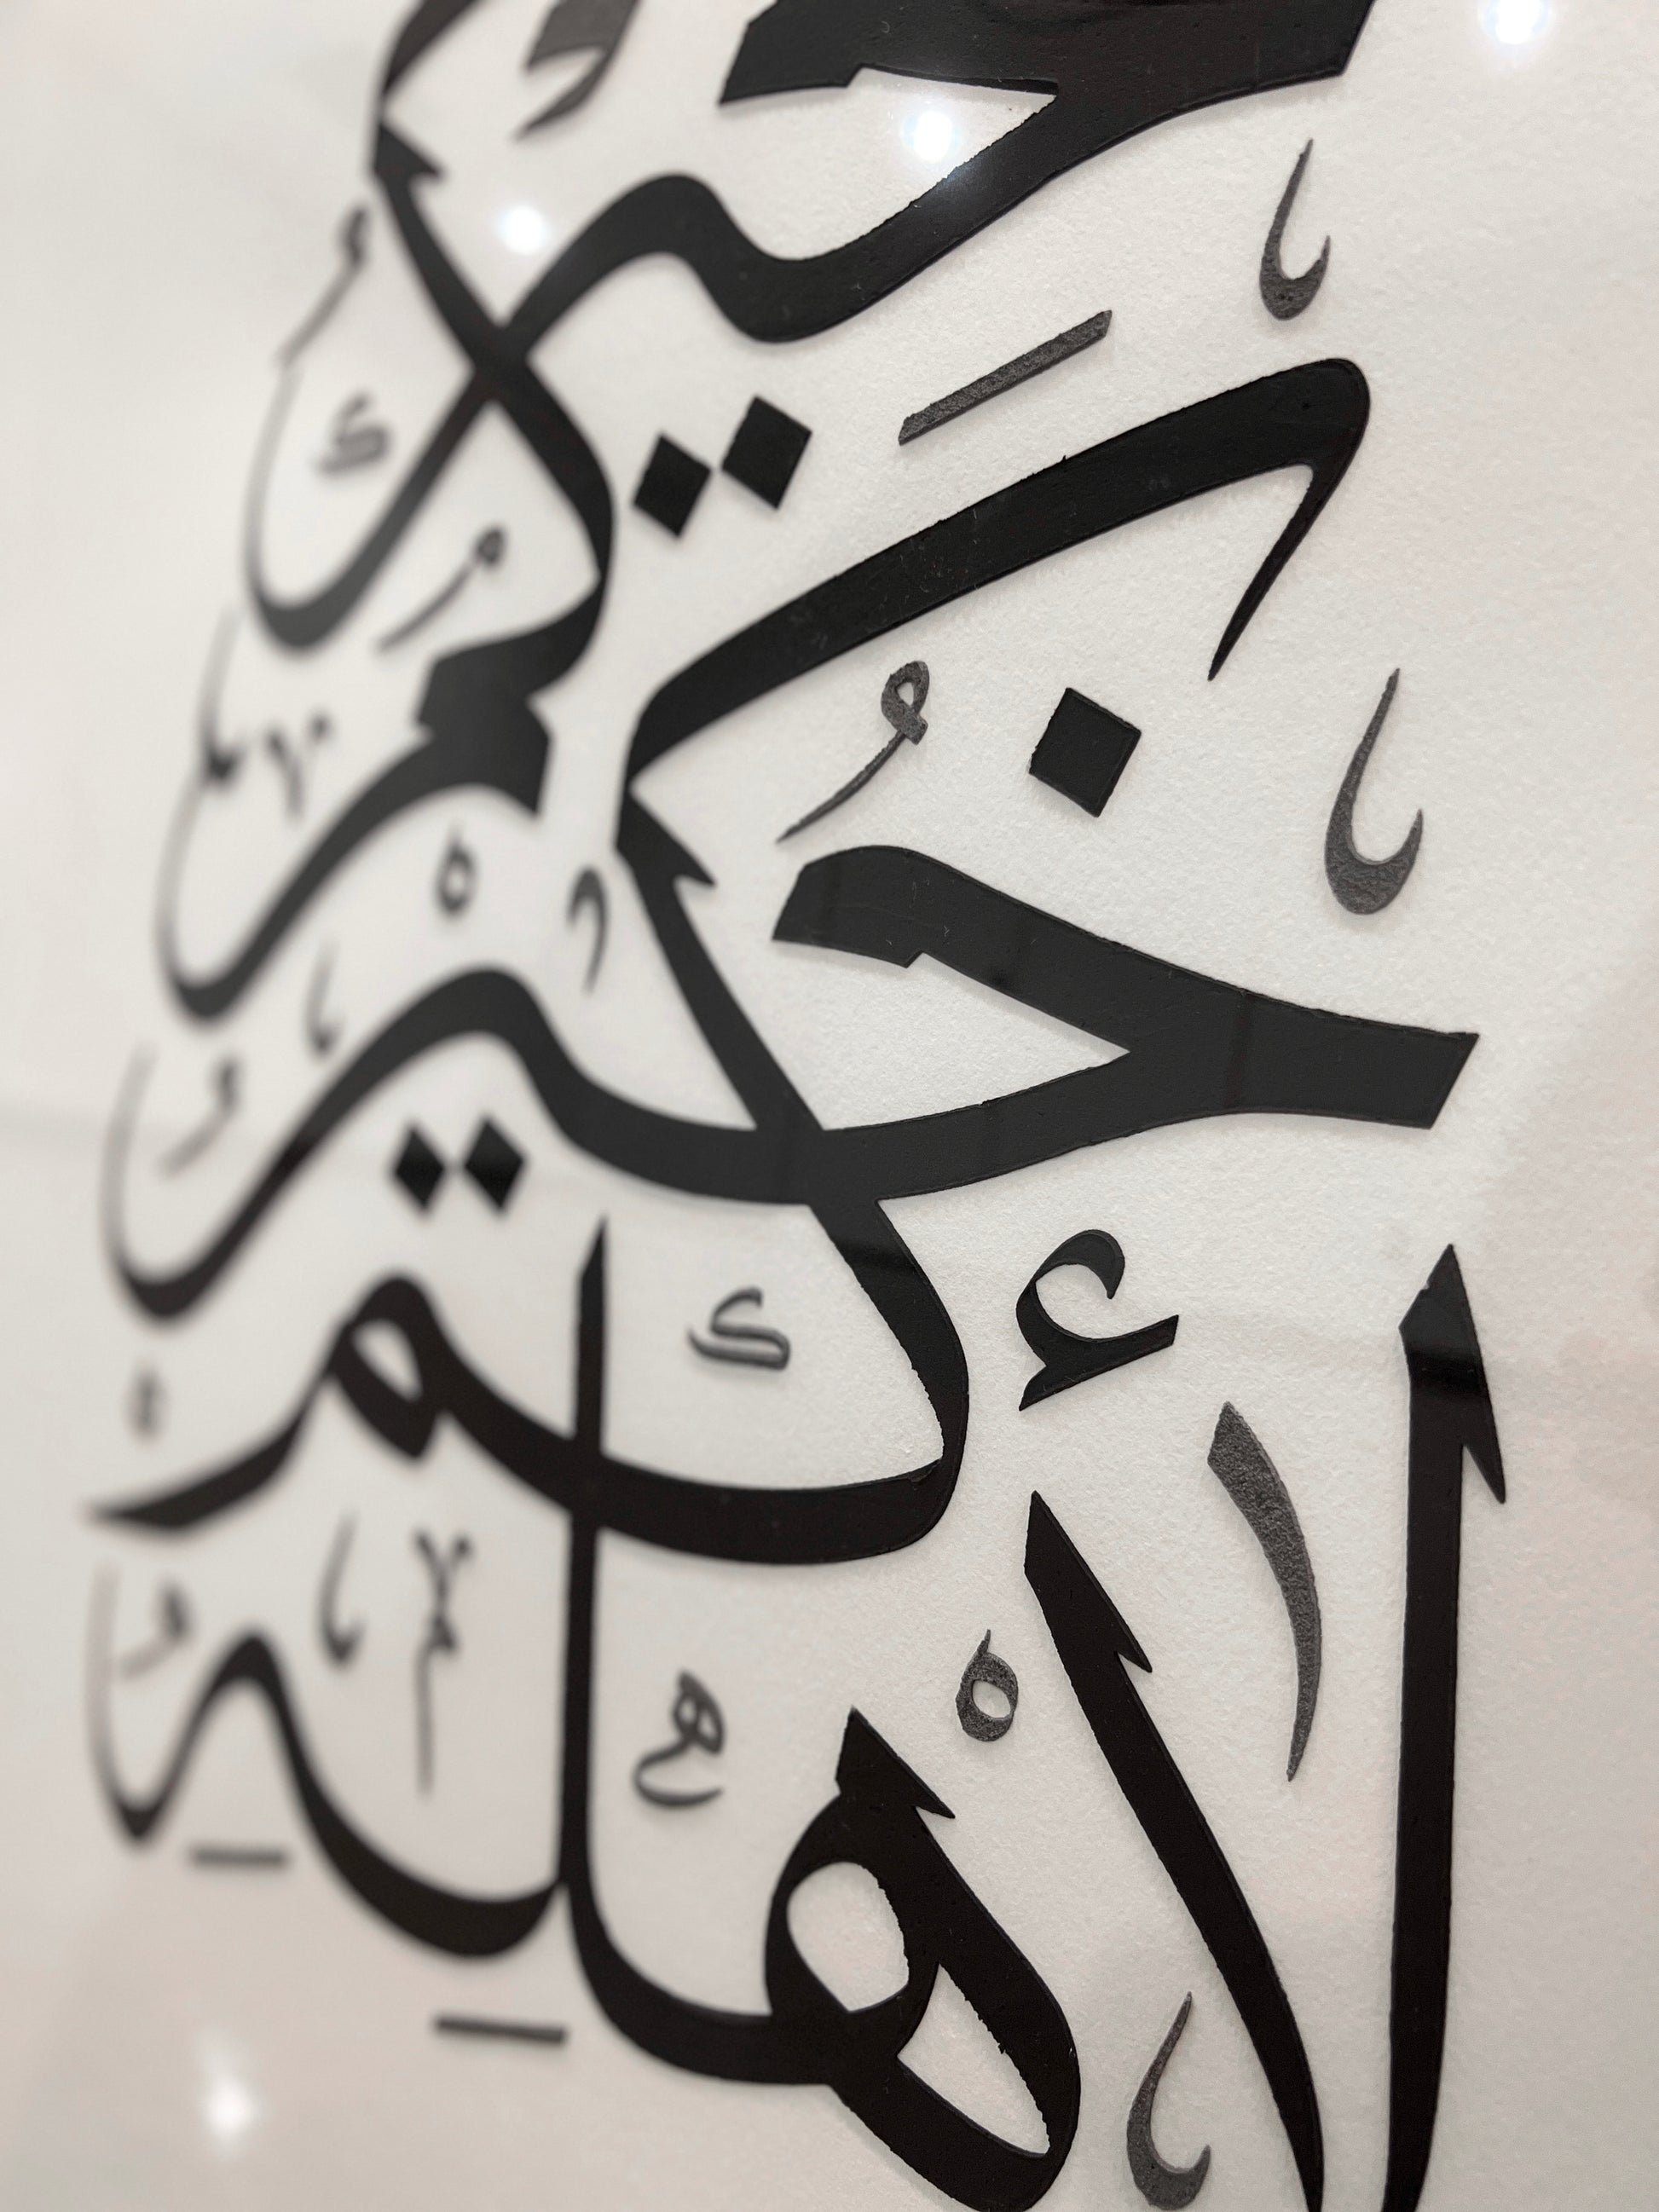 خَيْرُكُمْ
خَيْرُكُمْ
لِأَهْلِهِ